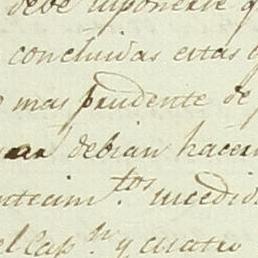 debe suponerse q
concluidas estas q
mas prudente de
debian hacer
ntecim.tos sucedid
el Cap.n y cuatro